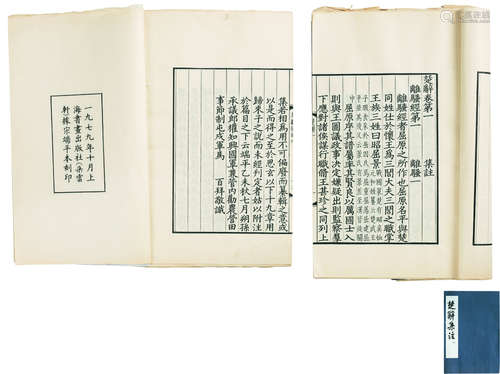 楚辭卷第一 集註
離騷經第一 離騷一
離騷經者屈原之所作也屈原名平與楚
同姓仕於懷王為三閭大夫三閭之職掌
王族三姓曰昭屈景
屈原序其譜屬率其賢良以厲國士入
則與王圖議政事決定嫌疑出則監察羣
下應對諸侯謀行職脩王甚珍之同列上
集若相為用不可偏廢而纂輯之意或
以是而得之至於悲玄以下十九章用
歸來子之說而未經判定者姑以附注
於篇目之下云端平乙未秋七月朔孫
承議郎權知興國軍兼管內勸農營田
事節制屯戍軍馬 百拜敬識
一九七九年十月上
海書畫出版社(朵雲
軒據宋端平本刻印
楚辭集注